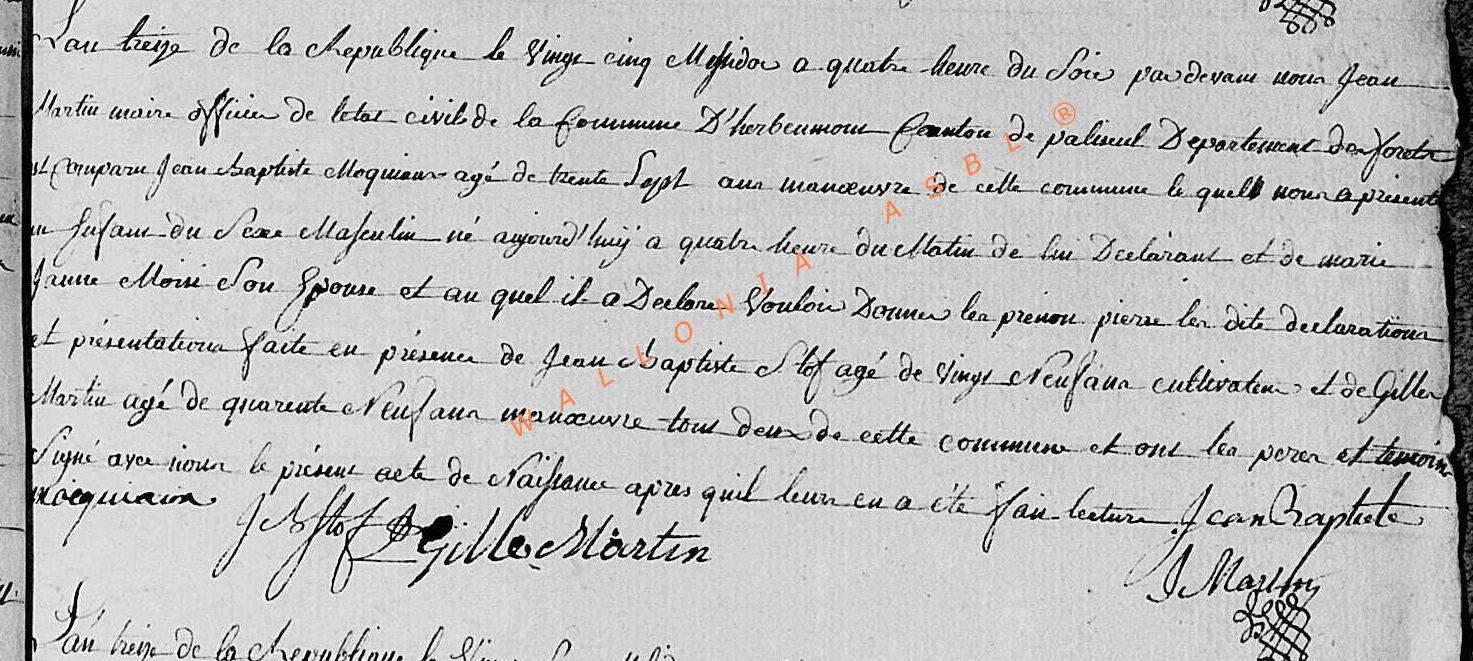 L'an treize de la Republique le Vingt cinq Messidor a quatre heure du Soir par devant nous Jean
Martin maire officier de letat civil de la Commune D'herbeumont Canton de paliseul Departement des forets
est Comparu Jean Baptiste Moquiaux agé de trente Sept ans manœuvre de cette commune le quel nous a présenté
un Enfant du Sexe Masculin né aujourd'huy a quatre heure du Matin de lui Declarant et de marie
Janne Moisi Son Epouse et au quel il a Declare Vouloir Donner les prenon pierre les dite declarations
et présentations faite en présence de Jean Baptiste Stof agé de Vingt Neuf ans cultivateur et de Gilles
Martin agé de quarente Neuf ans manœuvre tous deux de cette commune et ont les peres et temoin
Signé avec nous le présent acte de Naissance apres quil leurs en a été fait lecture Jean Baptiste
mocquiaux J B Stof Gille Martin
J Martin
WALLONIA ASBL ®
L'an treize de la Republique le Vingt